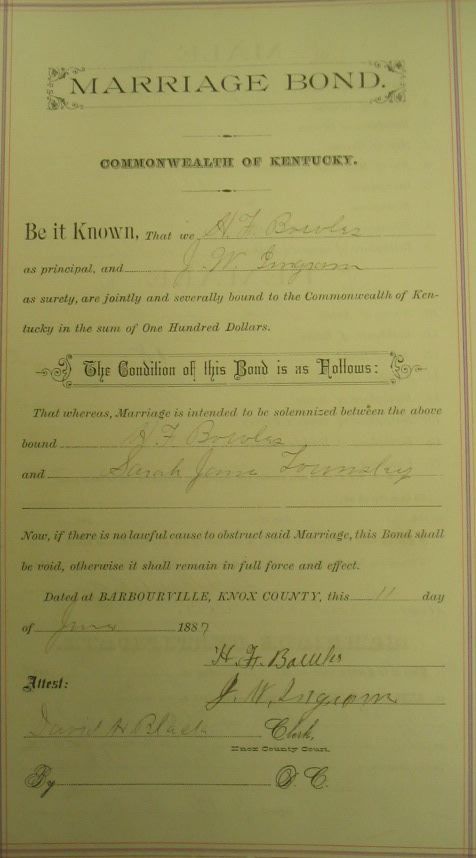 MARRIAGE BOND.
COMMONWEALTH OF KENTUCKY.
Be it Known, That we H. F. Bowles
as principal, and J. W. Ingram
as surety, are jointly and severally bound to the Commonwealth of Ken-
tucky in the sum of One Hundred Dollars.
The Condition of this Bond is as Follows:
That whereas, Marriage is intended to be solemnized between the above
bound H F Bowles
and Sarah Jane Townsley
Now, if there is no lawful cause to obstruct said Marriage, this Bond shall
be void, otherwise it shall remain in full force and effect.
Dated at BARBOURVILLE, KNOX COUNTY, this 11 day
of June 1887
H. F. Bowles
Attest:
J. W. Ingram
David H Black Clerk,
Knox County Court.
By D. C.